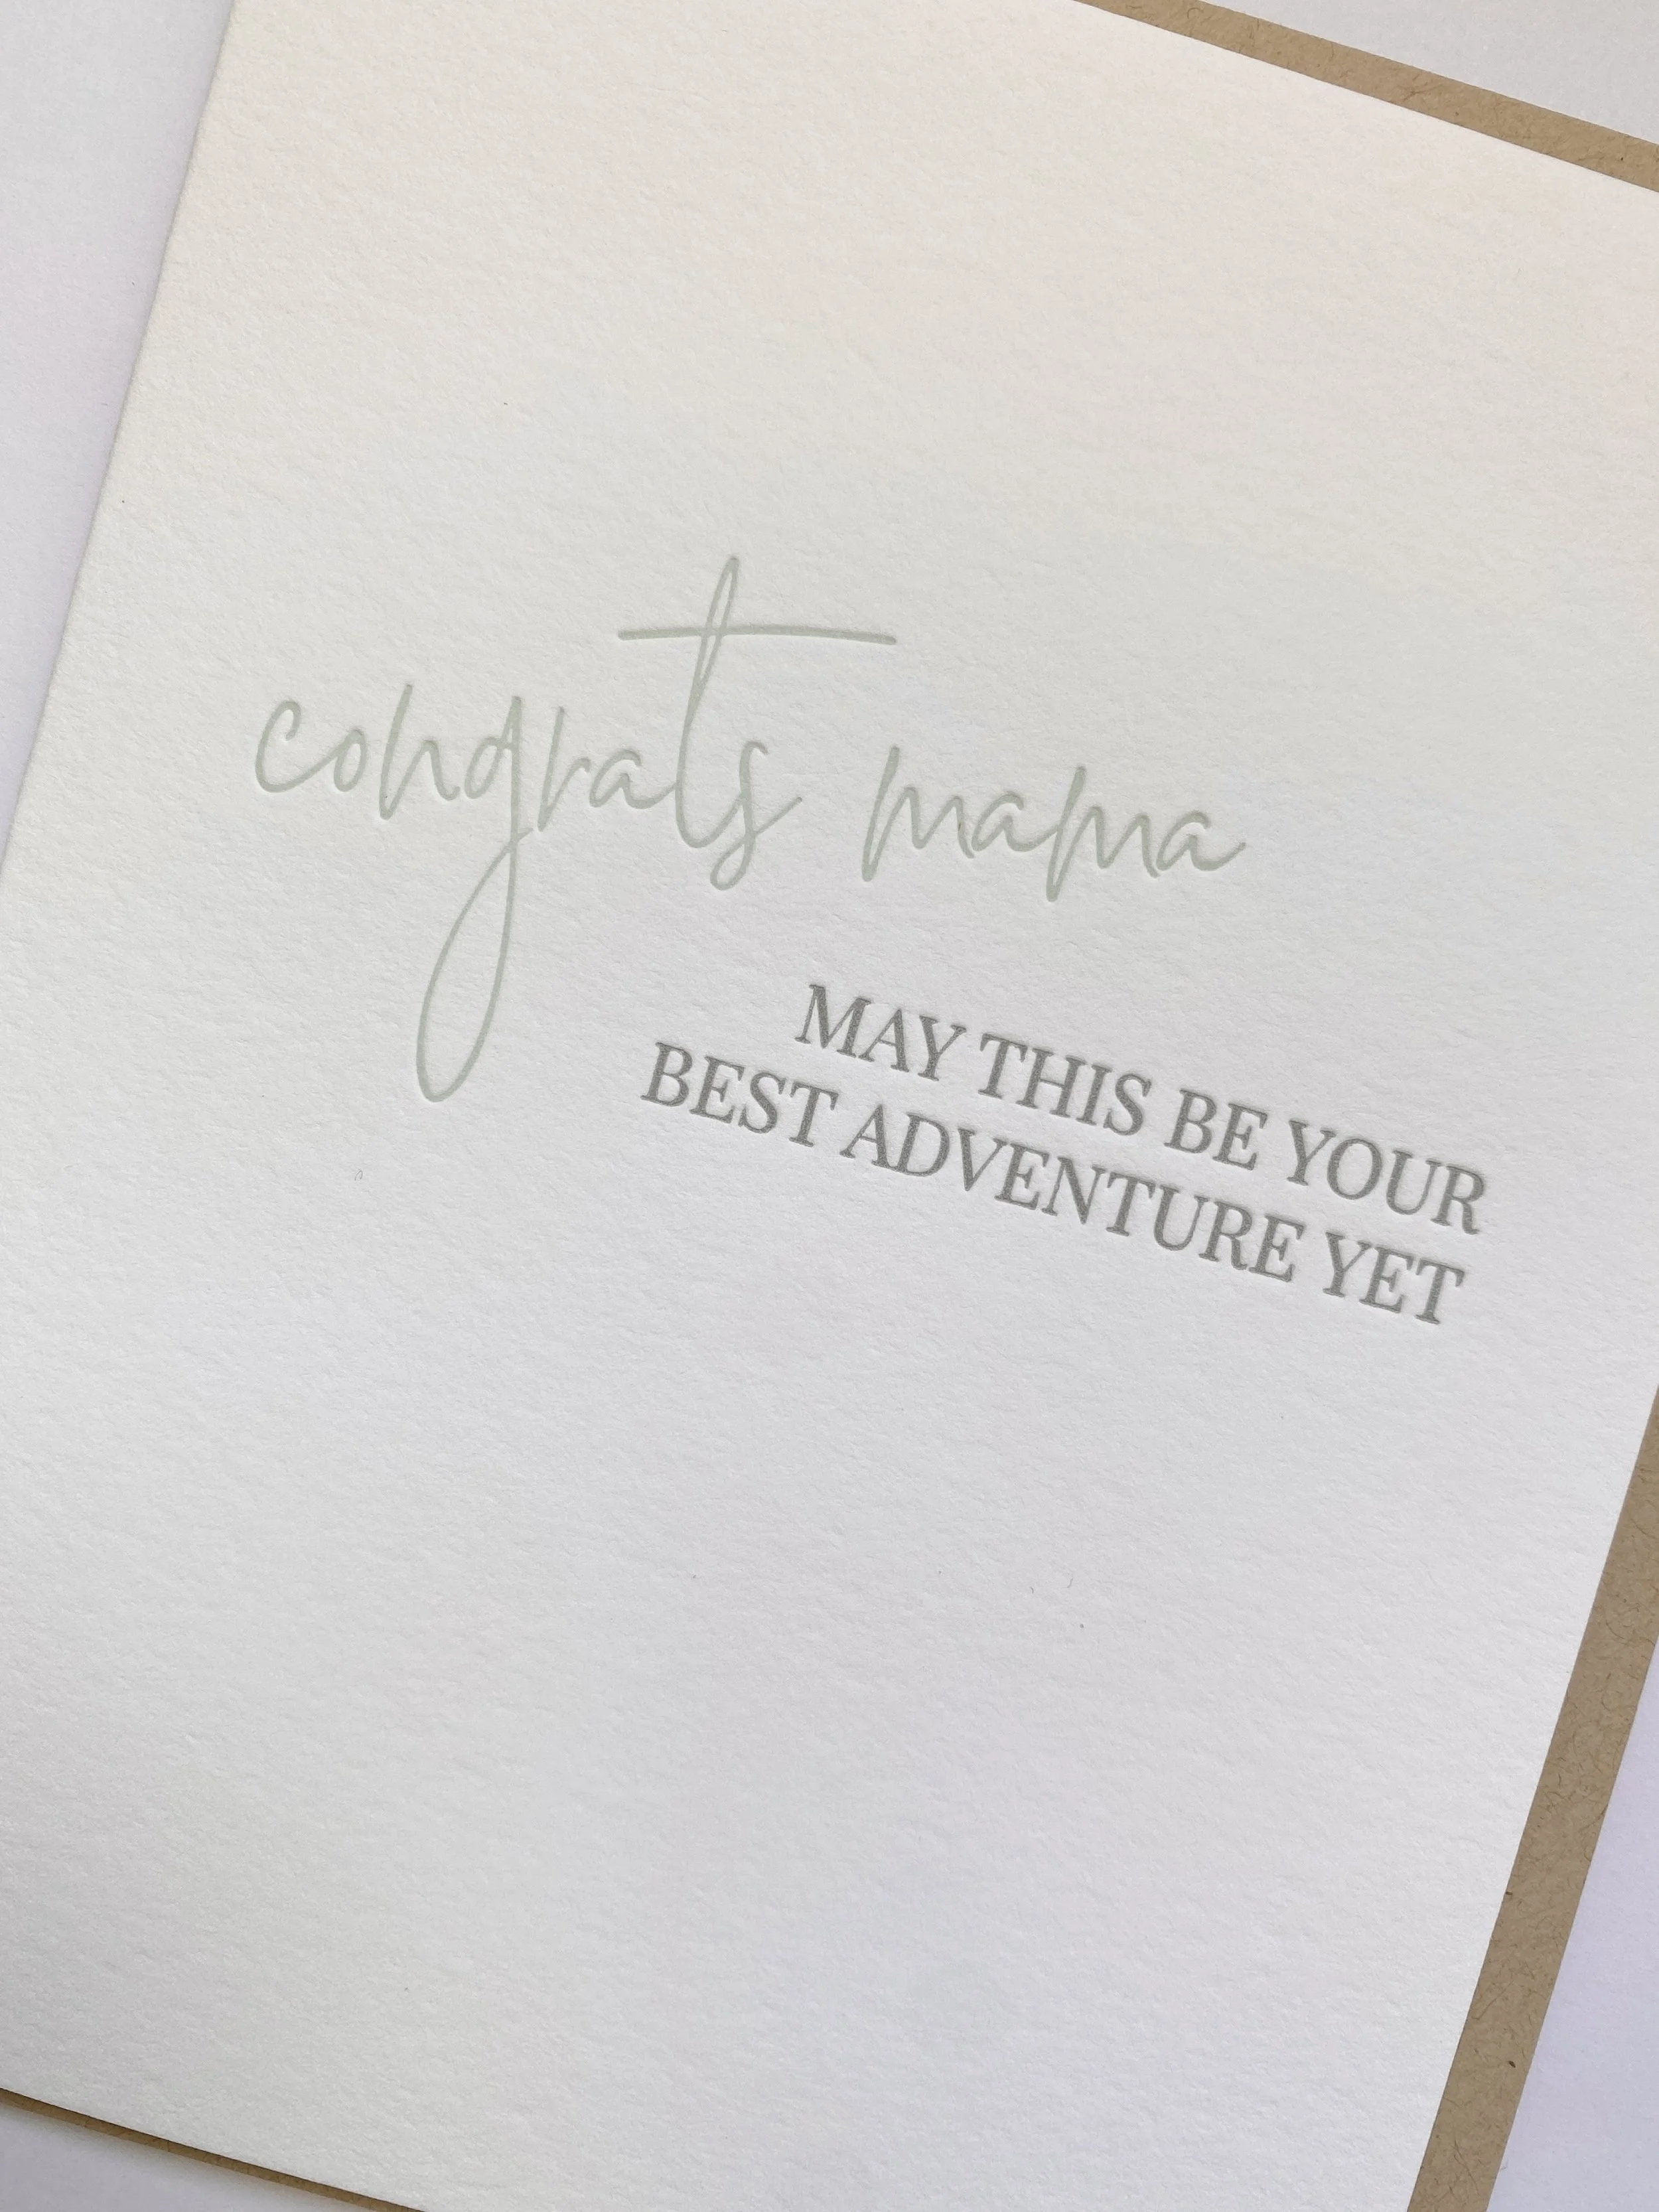 congrats mama
MAY THIS BE YOUR
BEST ADVENTURE YET